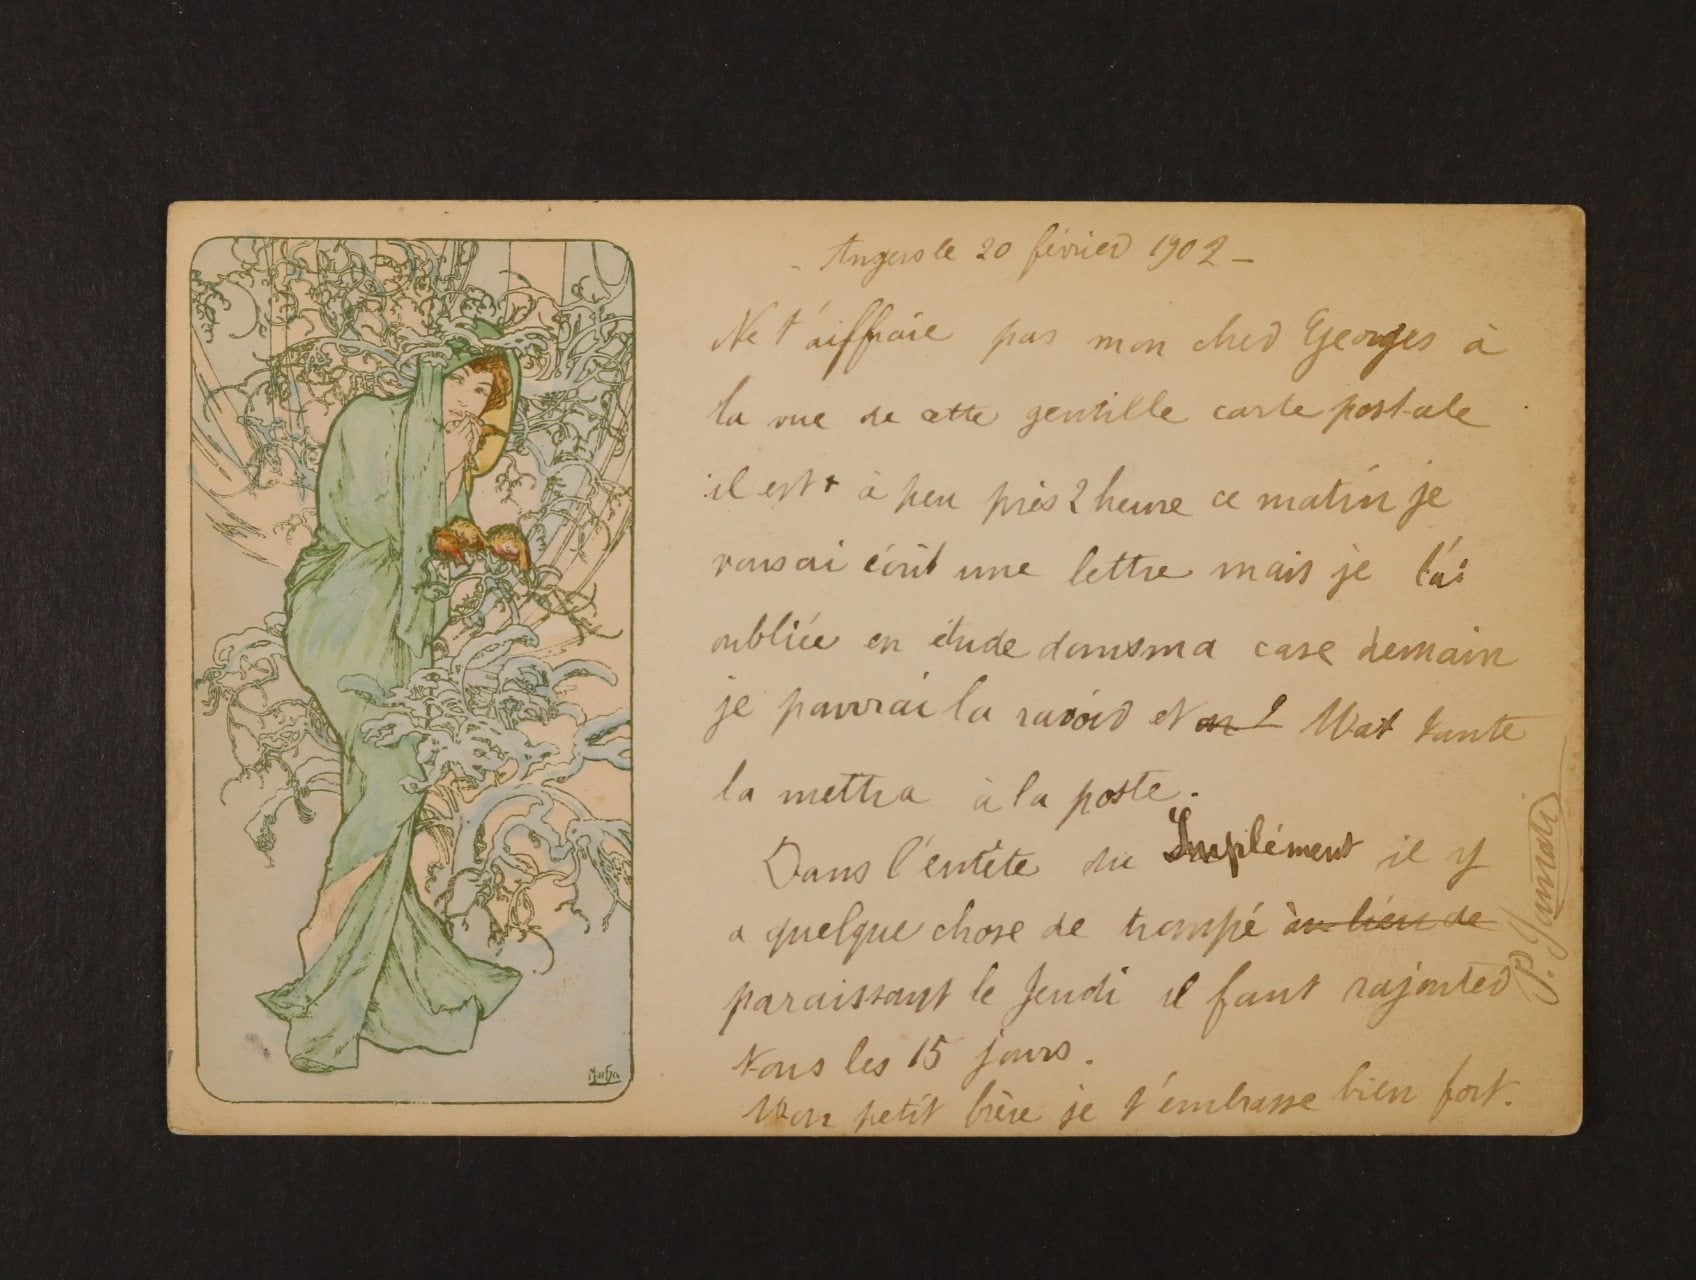 - Angers le 20 février 1902 -
Ne t'aiffraie pas mon cher Georges à
la vue de cette gentille carte postale
il est à peu près 2 heure ce matin je
vous ai écrit une lettre mais je l'ai
oubliée en étude dans ma case demain
je pourrai la ravoir et Mat tante
la mettra à la poste.
Dans l'entête du Suplément il y
a quelque chose de trompé au lieu de
paraissant le Jeudi il faut rajouter
tous les 15 jours.
Mon petit frère je t'embrasse bien fort.
Mucha